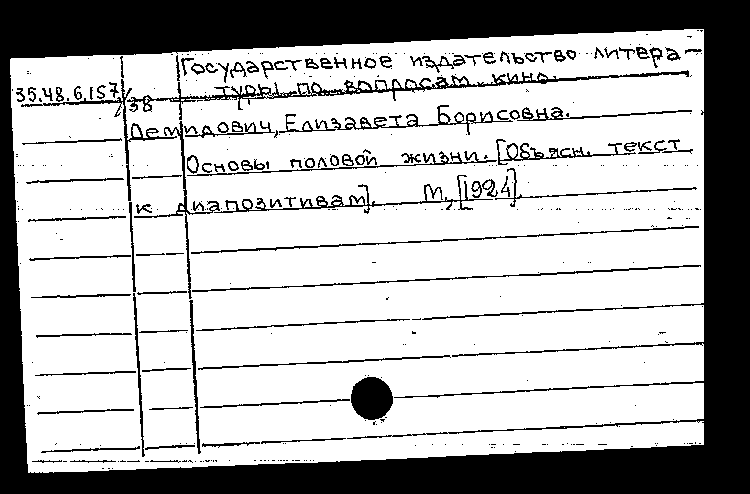 Государственное издательство литера-
35.48.6.157/38 туры по вопросам кино.
Демидович, Елизавета Борисовна.
Основы половой жизни. [Объясн. текст
к диапозитивам]. М., [1924].